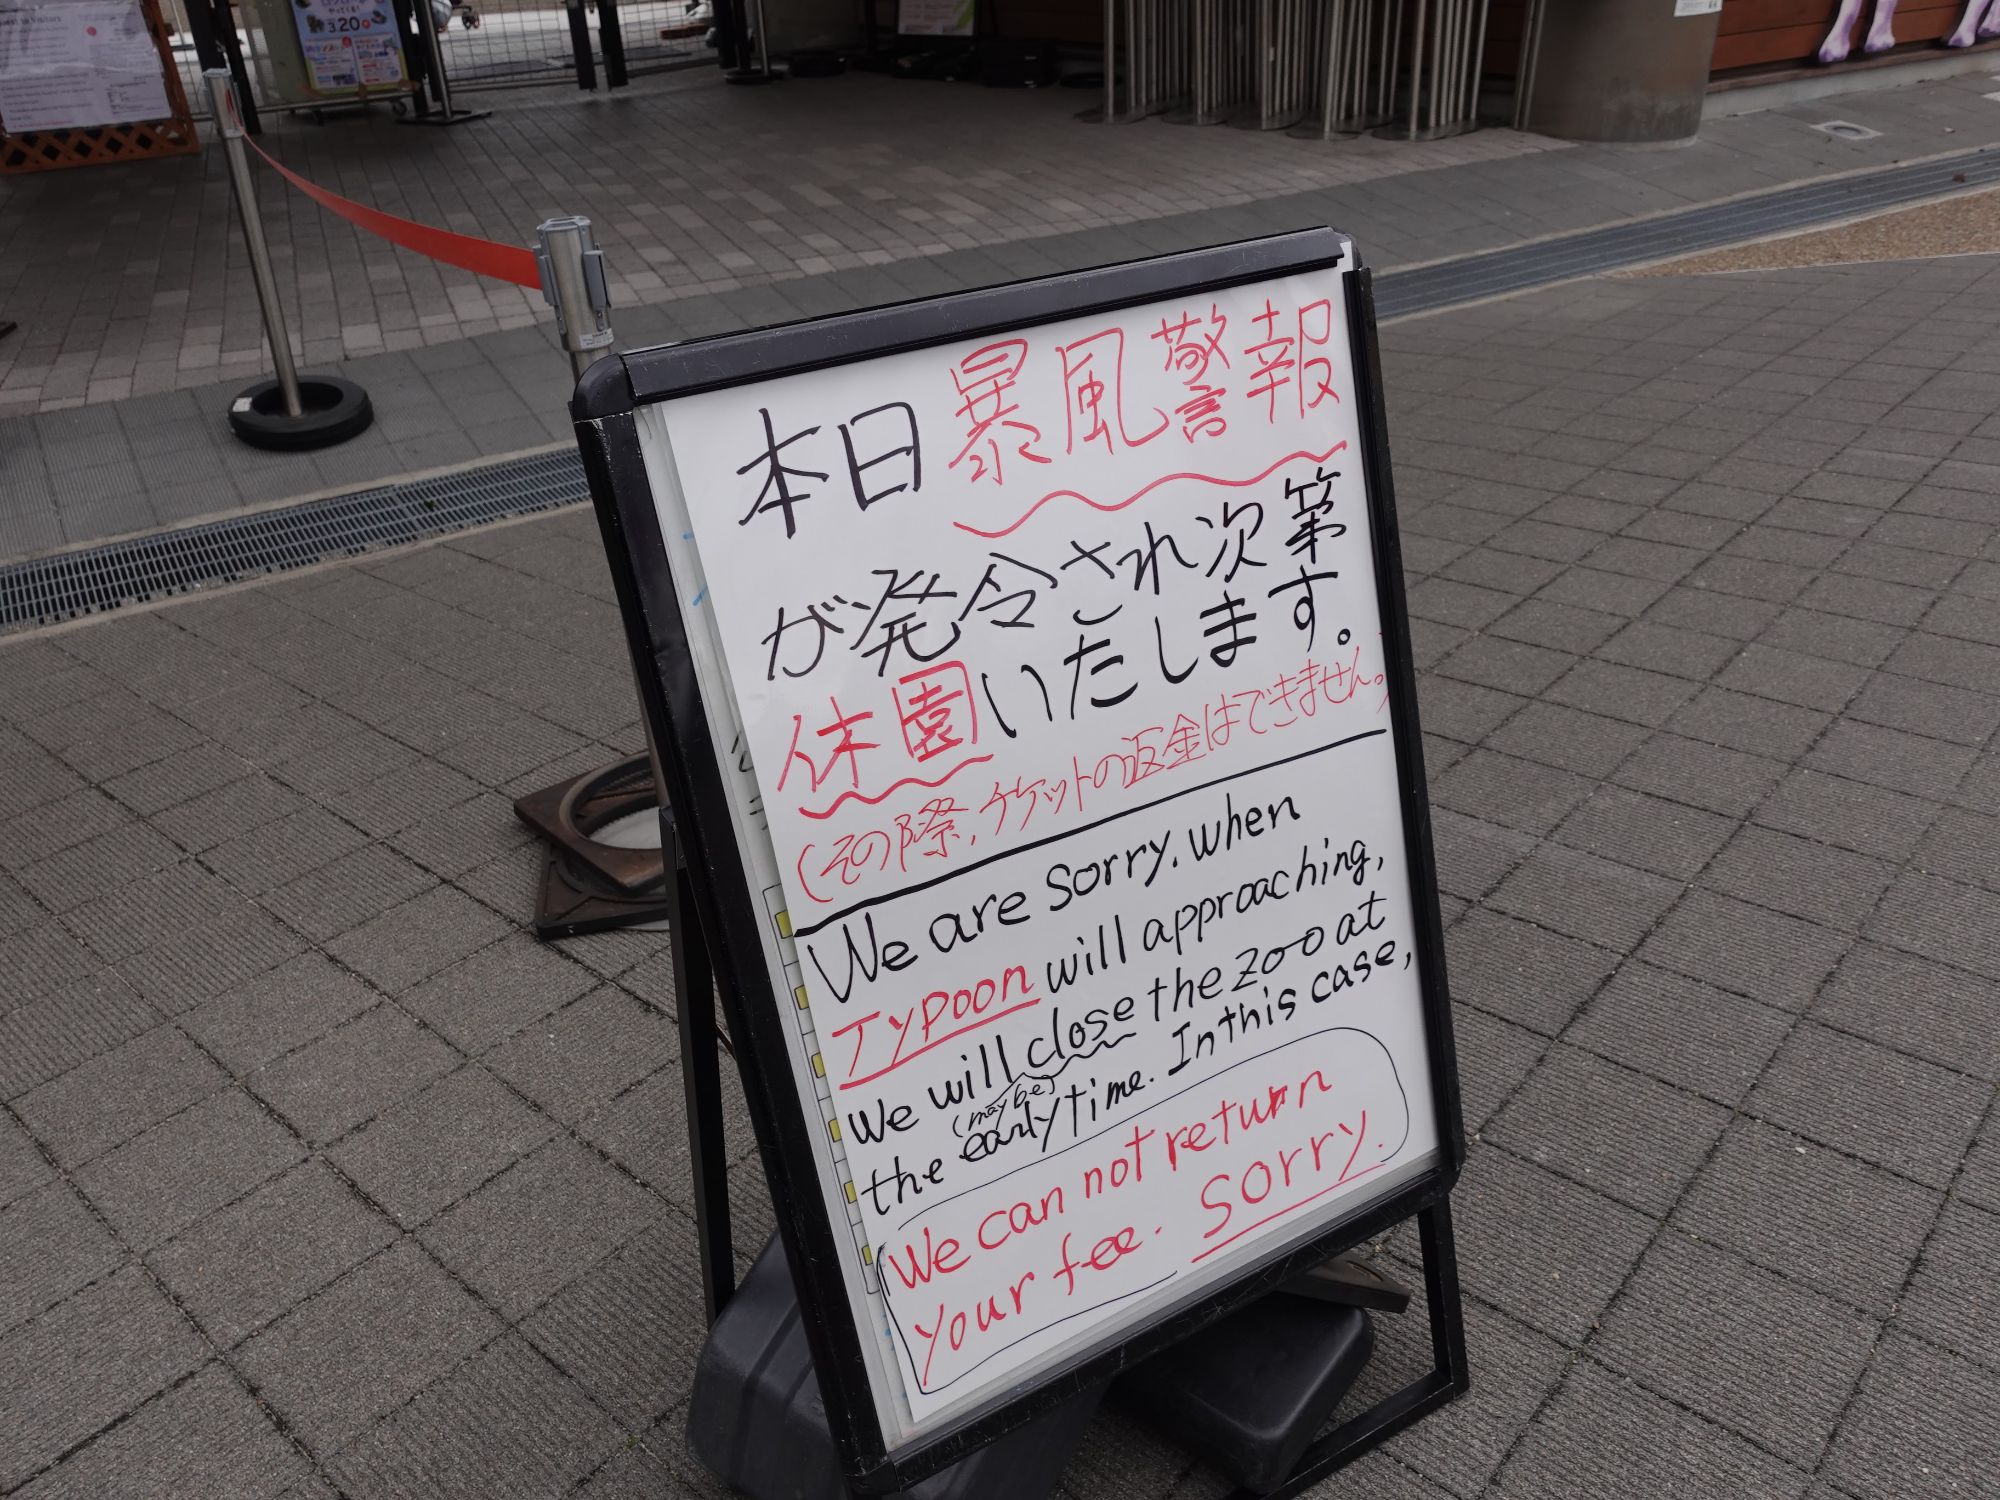 本日暴風警報
が発令され次第
休園いたします。
(その際、チケットの返金はできません。)
We are Sorry. When
Typoon will approaching,
We will close the Zoo at
(maybe)
the early time. In this case,
We can not return
your fee. Sorry.
3.20